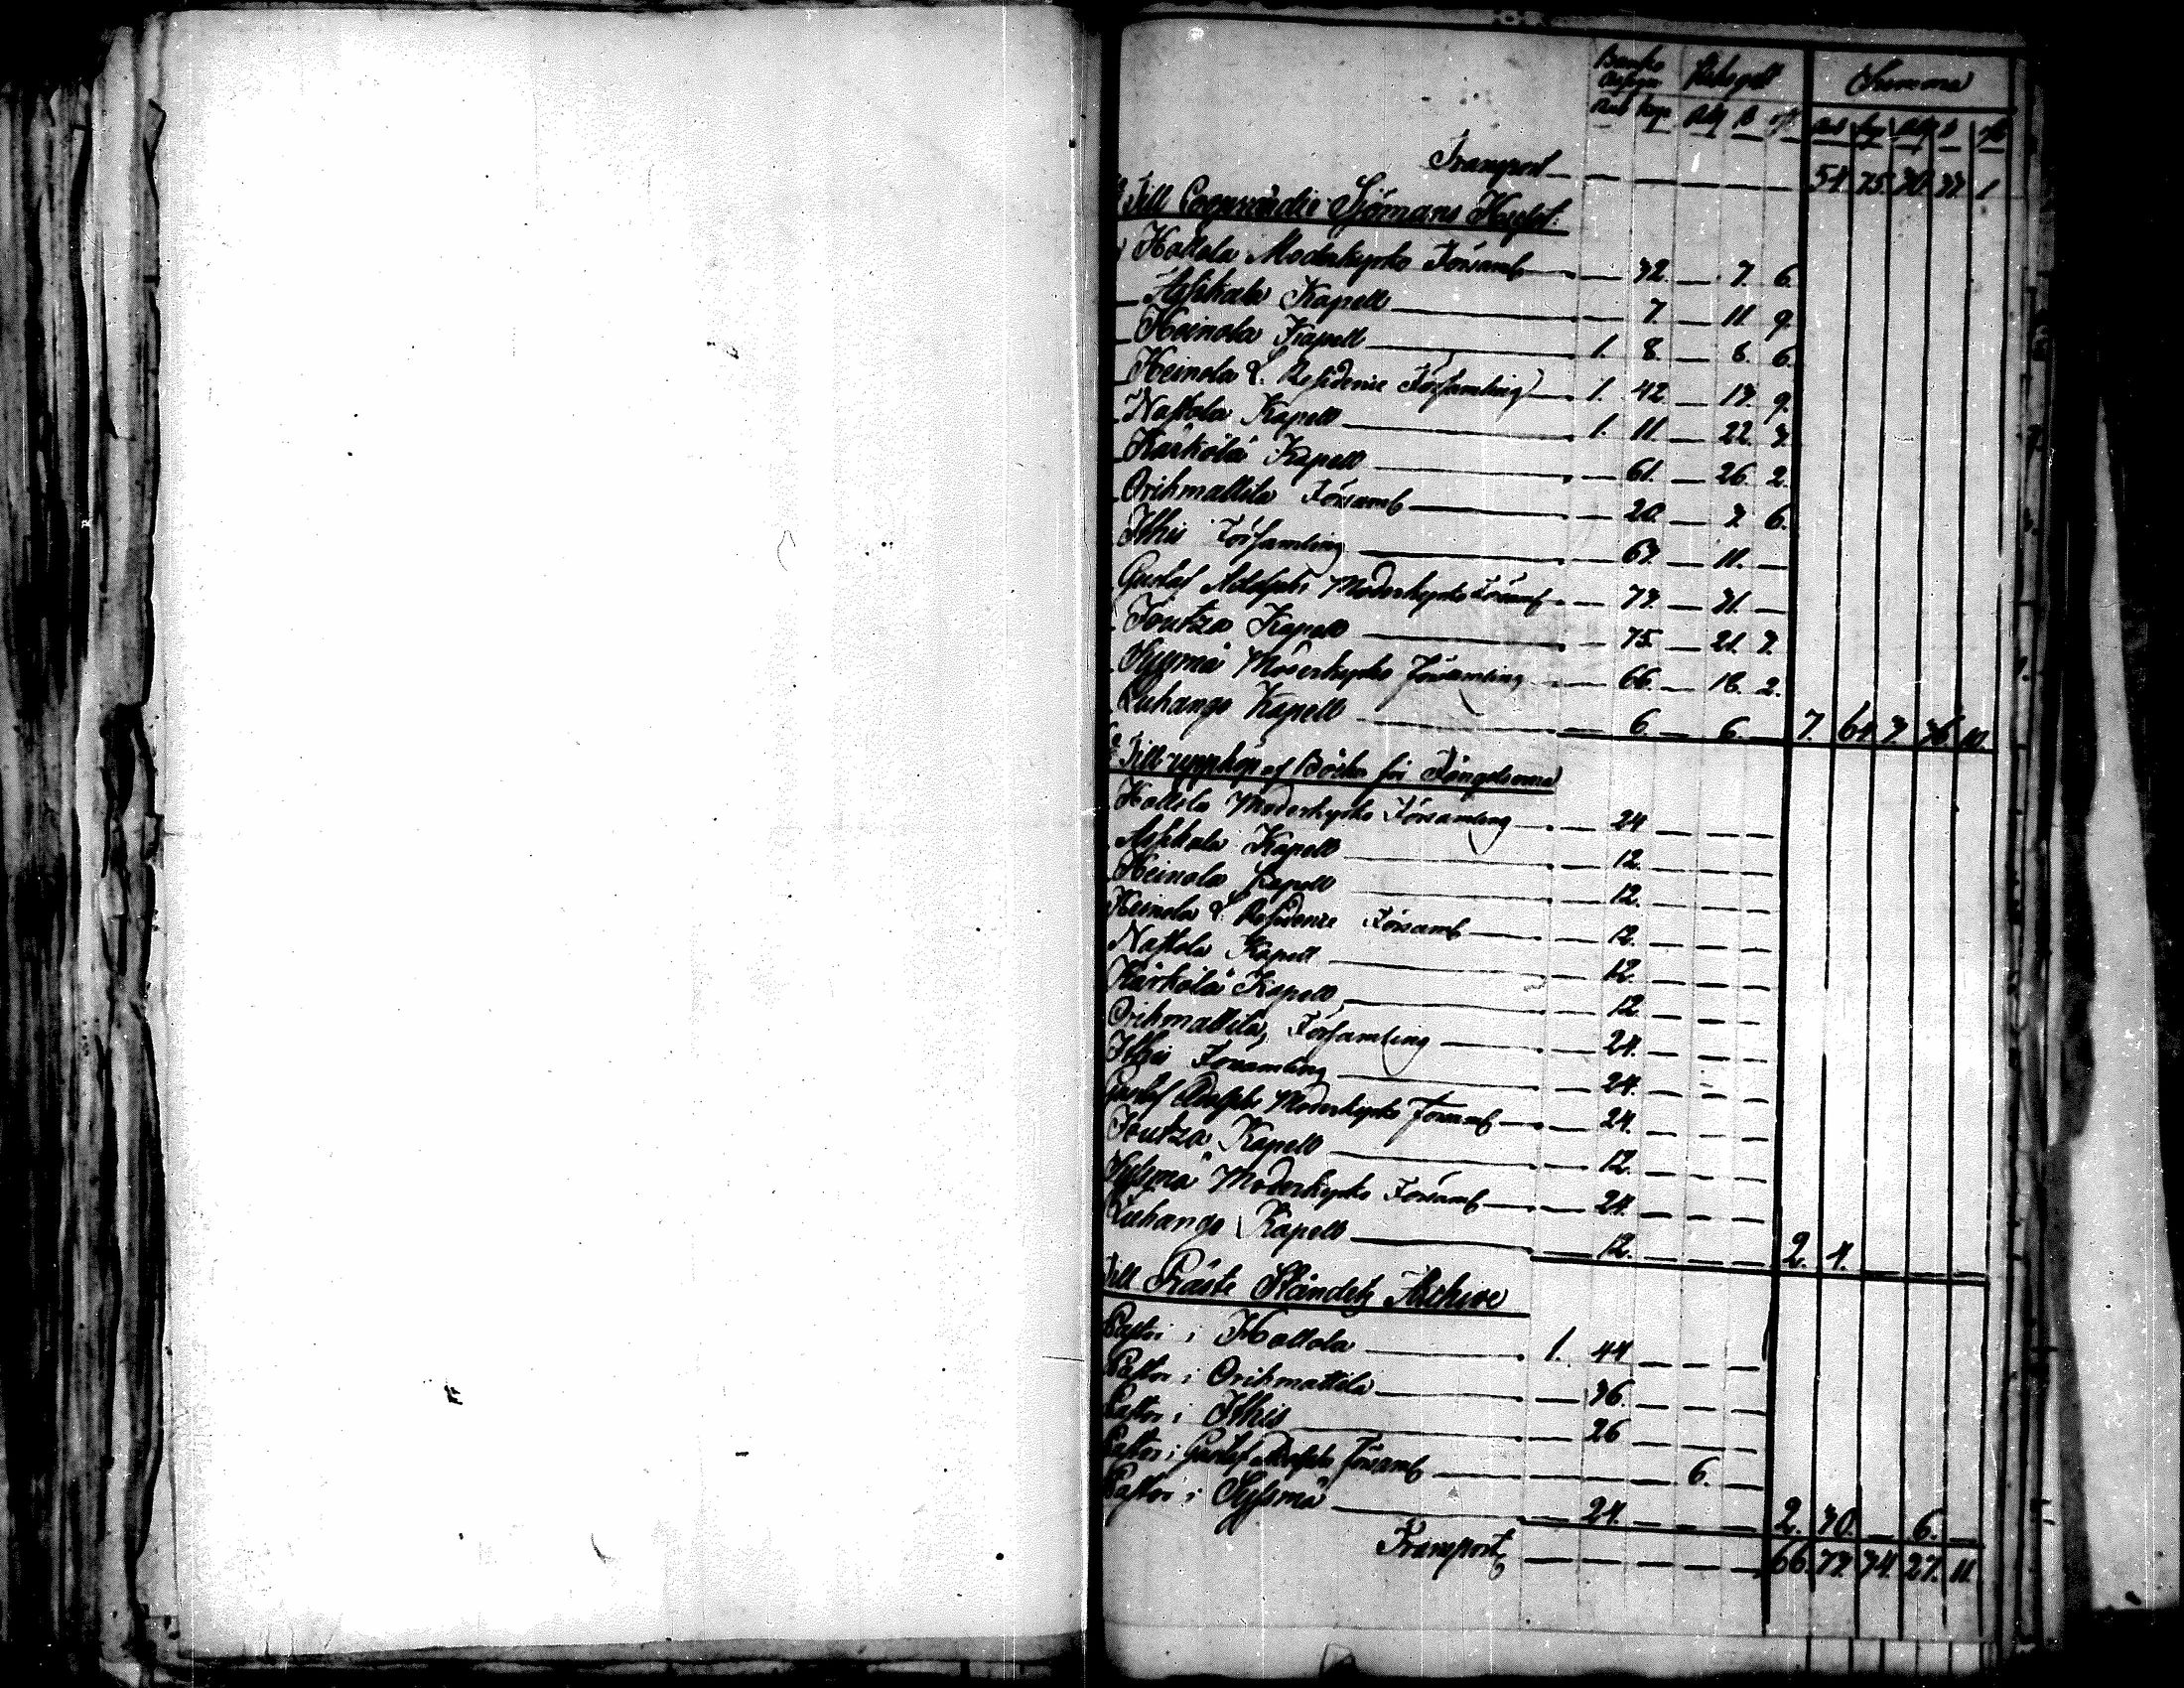 Banko Riksgält Summa
Rub kop Rdg ß rst Rub kop Rdg ß rst
Transport — — — — — 54. 75. 30. 37. 1
Till Sjömans Huset.
Hollola Moderkyrko Församl — — 32. — 7. 6.
Asikkala Kapell — — 7. — 11. 9.
Heinola Kapell — 1. 8. — 6. 6.
Heinola L. Residence Församling — 1. 42. — 17. 9.
Nastola Kapell — 1. 11. — 22. 3.
Kärkölä Kapell — — 61. — 26. 2.
Orihmattila Församl — — 20. — 3. 6.
Ithis Församling — — 67. — 11. —
Gustaf Adolphs Moderkyrko Församl — — 77. — 31. —
Joutza Kapell — — 75. — 21. 3.
Sysmä Moderkyrko Församling — — 66. — 18. 2.
Luhango Kapell — — 6. — 6. — 7. 64. 3. 36. 10.
Till uppköp af Böcker för Fångelserna
Hollola Moderkyrko Församling — — 24 — — —
Asikkala Kapell — — 12. — — —
Heinola Kapell — — 12. — — —
Heinola L. Residence Församl — — 12. — — —
Nastola Kapell — — 12. — — —
Kärkölä Kapell — — 12 — — —
Orihmattila Församling — — 24. — — —
Ithis Församling — — 24. — — —
Gustaf Adolphs Moderkyrko Församl — — 24. — — —
Joutza Kapell — — 12. — — —
Sysmä Moderkyrko Församl — — 24. — — —
Luhango Kapell — — 12. — — — 2. 4. — — —
Till Präste Ståndets Archive
Pastor i Hollola — 1. 44 — — —
Pastor i Orihmattila — — 36. — — —
Pastor i Ithis — — 26 — — —
Pastor i Gustaf Adolphs Församl — — — — 6. —
Pastor i Sysmä — — 24. — — — 2. 30. — 6. —
Transport — — — — — 66. 73. 34. 27. 11.